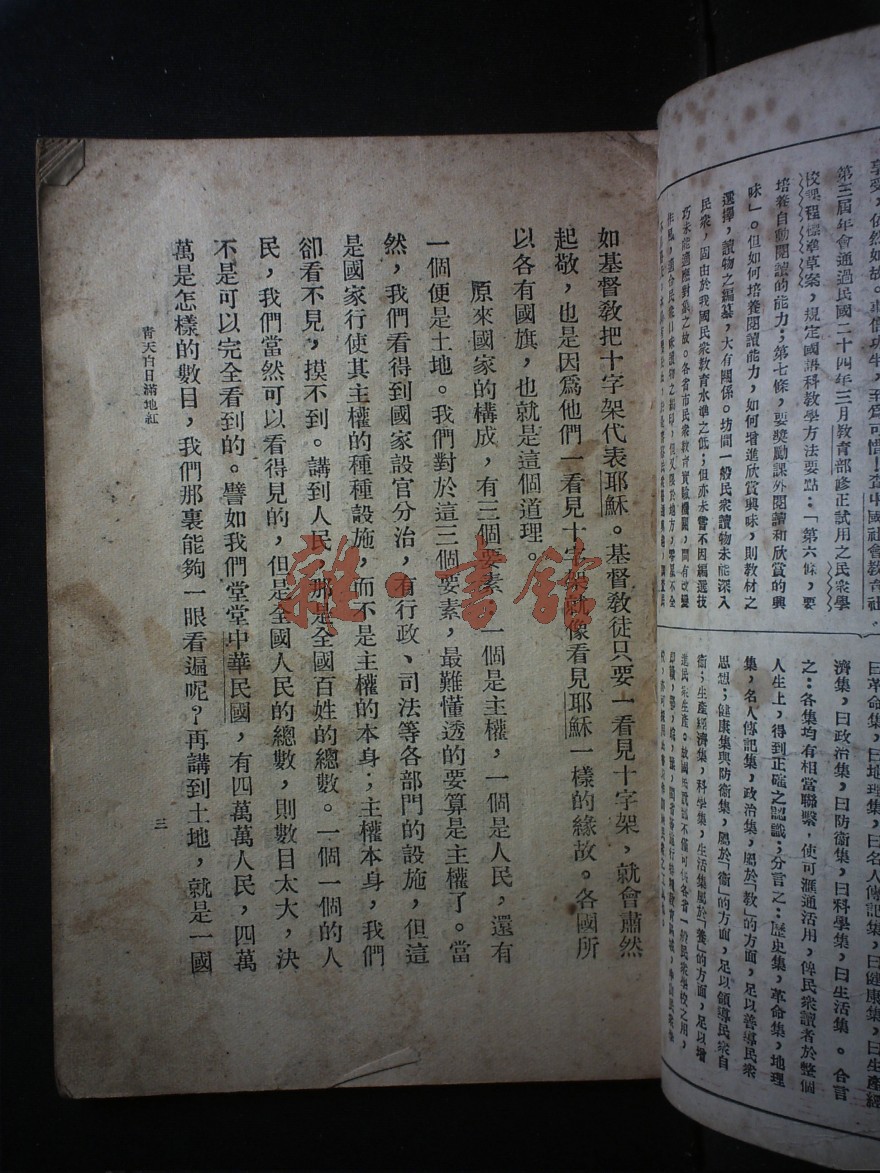 享受，依然如故。
第三屆年會通過民國二十四年三月教育部修正試用之民衆學
校課程標準草案，規定國語科教學方法要點：「第六條，要
培養自動閱讀的能力；第七條，要獎勵課外閱讀和欣賞的興
味」。但如何培養閱讀能力，如何增進欣賞興味，則教材之
選擇，讀物之編纂，大有關係。坊間一般民衆讀物未能深入
民衆，固由於我國民衆教育水準之低；但亦未嘗不因編選技
巧未能適應對象之故。各省市民衆教育實驗機關，間有改變
曰革命集，曰地理集，曰名人傳記集，曰健康集，曰生產經
濟集，曰政治集，曰防衞集，曰科學集，曰生活集。合言
之：各集均有相當聯繫，使可滙通活用，俾民衆讀者於整個
人生上，得到正確之認識；分言之：歷史集，革命集，地理
集，名人傳記集，政治集，屬於「教」的方面，足以善導民衆
思想；健康集與防衞集，屬於「衞」的方面，足以領導民衆自
衞；生產經濟集，科學集，生活集屬於「養」的方面，足以增
進民衆生產。
如基督敎把十字架代表耶穌。基督敎徒只要一看見十字架，就會肅然
起敬，也是因爲他們一看見十字架就像看見耶穌一樣的緣故。各國所
以各有國旗，也就是這個道理。
原來國家的構成，有三個要素，一個是主權，一個是人民，還有
一個便是土地。我們對於這三個要素，最難懂透的要算是主權了。當
然，我們看得到國家設官分治，有行政、司法等各部門的設施，但這
是國家行使其主權的種種設施，而不是主權的本身；主權本身，我們
卻看不見，摸不到。講到人民，那是全國百姓的總數。一個一個的人
民，我們當然可以看得見的，但是全國人民的總數，則數目太大，決
不是可以完全看到的。譬如我們堂堂中華民國，有四萬萬人民，四萬
萬是怎樣的數目，我們那裏能夠一眼看遍呢？再講到土地，就是一國
靑天白日滿地紅
三
雜·書館